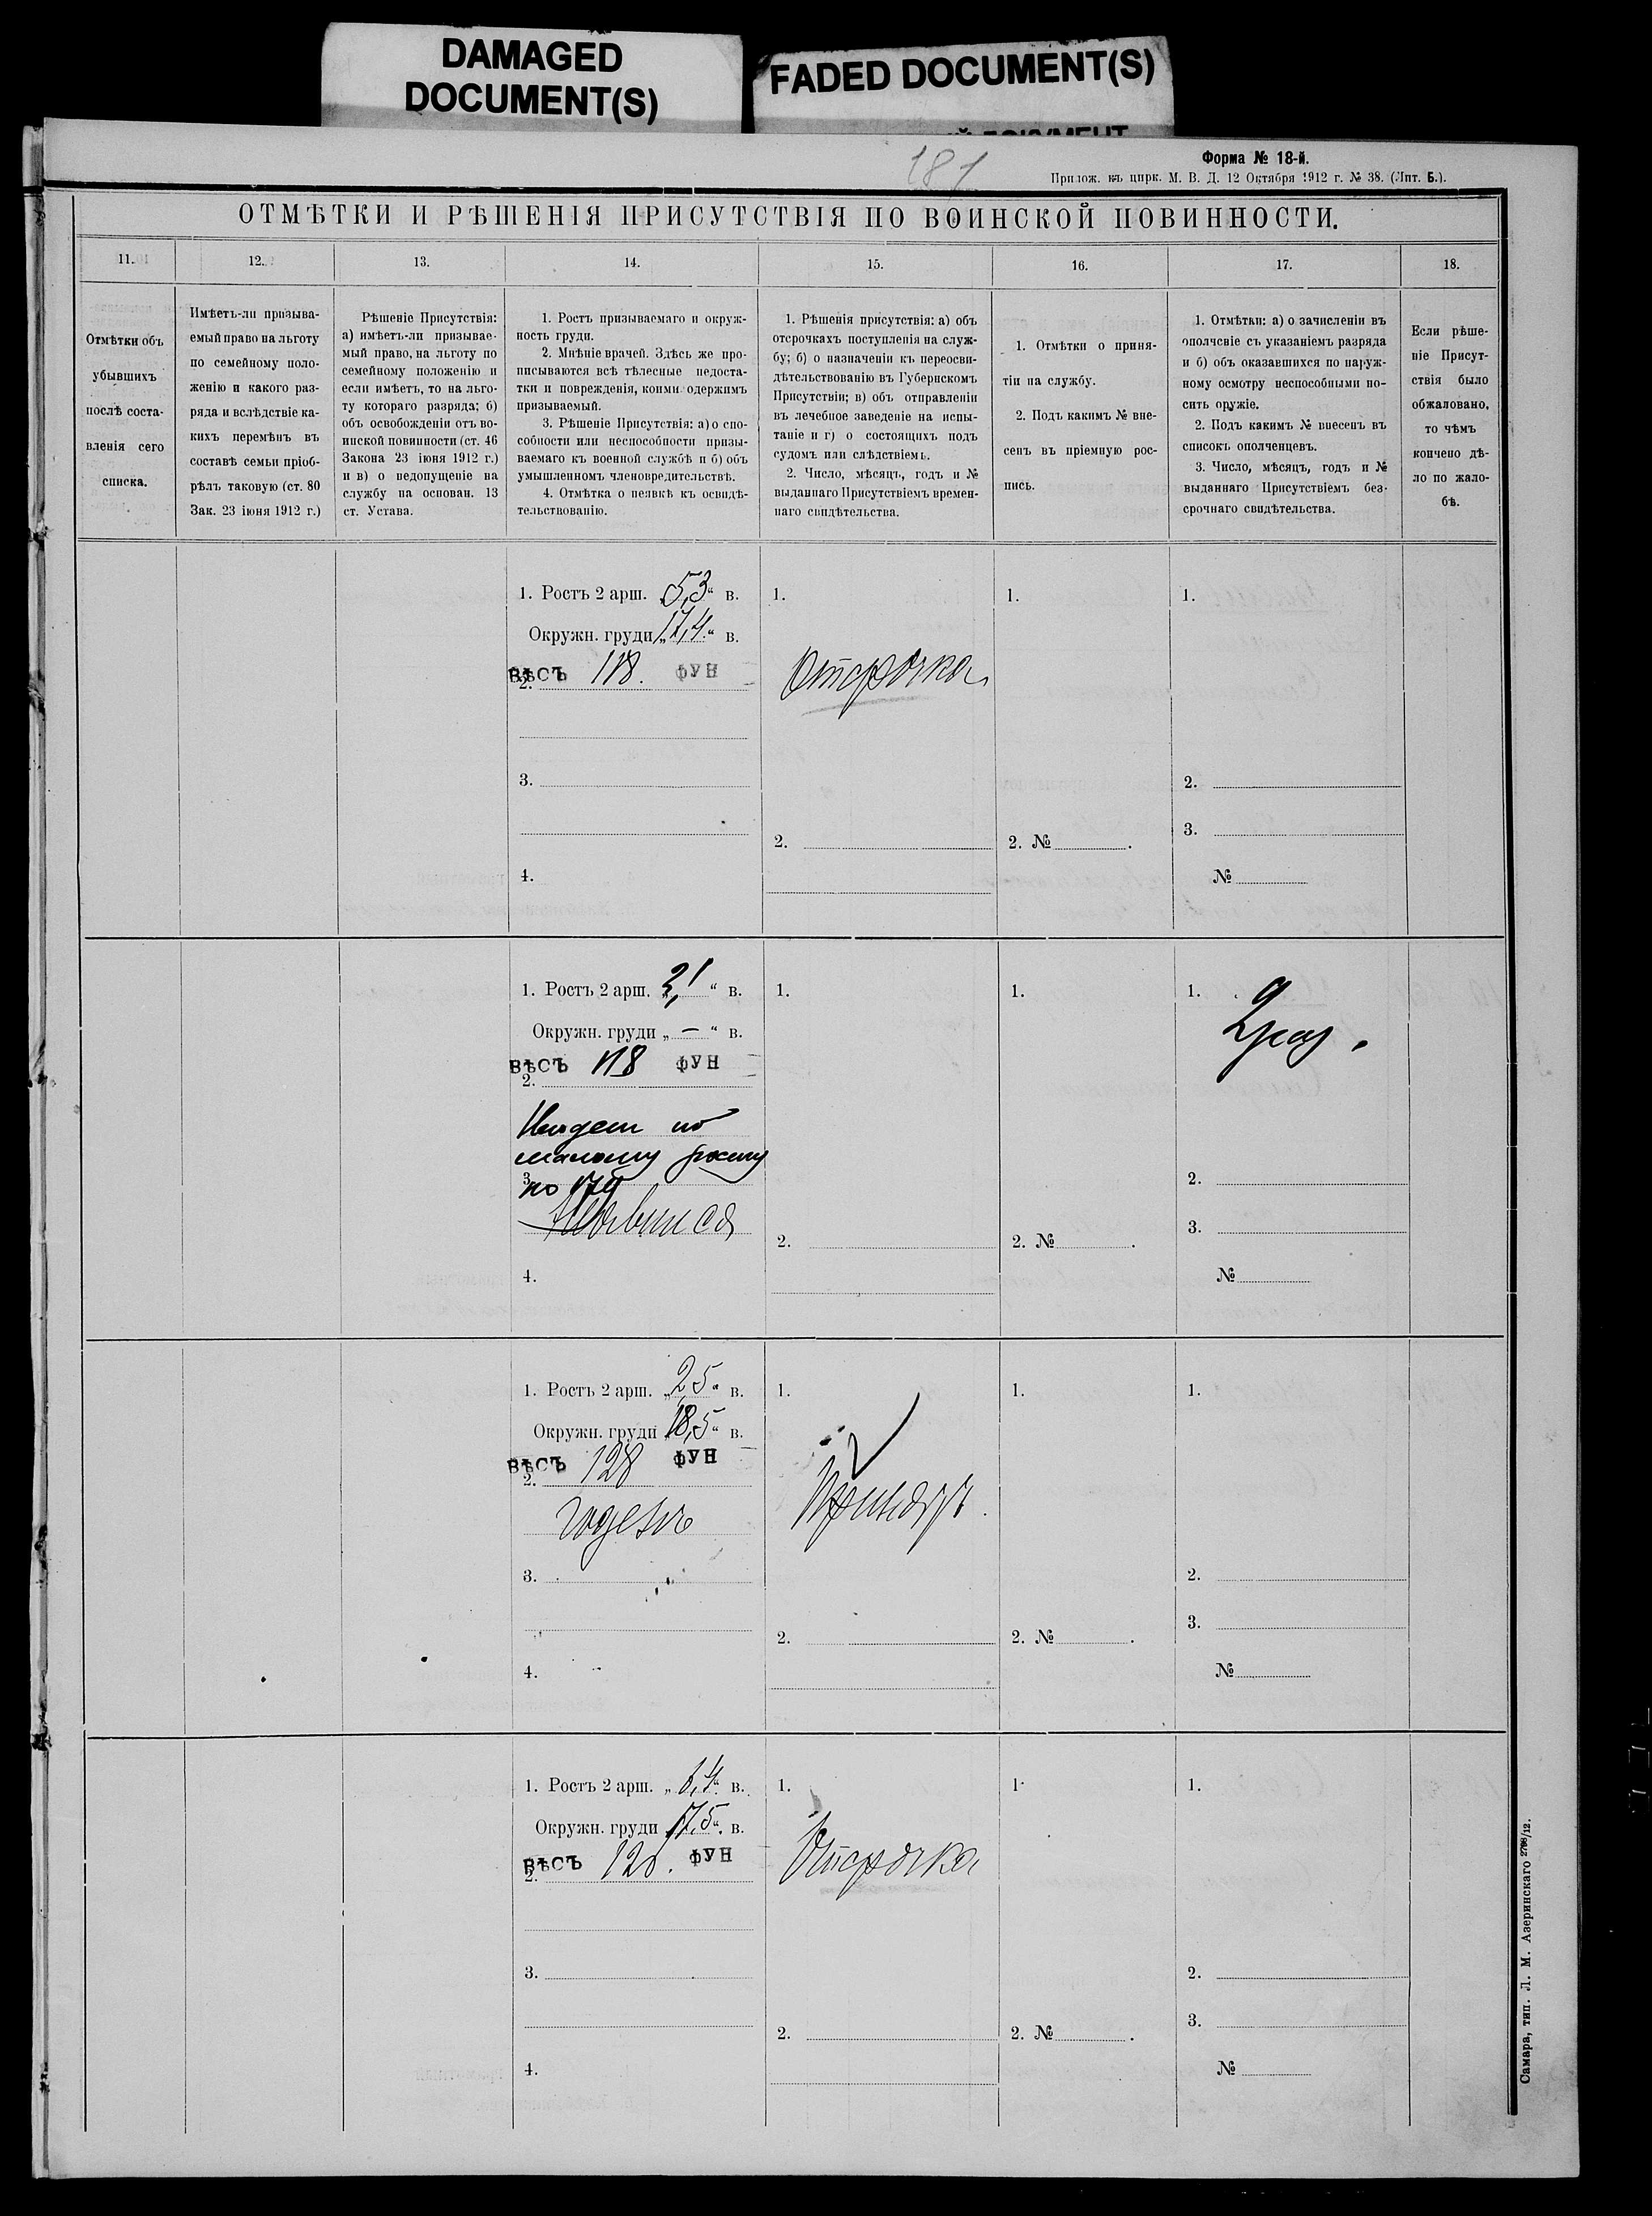 DAMAGED
DOCUMENT(S)
FADED DOCUMENT(S)
Форма № 18-й.
Прилож. къ цирк. М. В. Д. 12 Октября 1912 г. № 38. (Лит. Б.).
ОТМѢТКИ И РѢШЕНІЯ ПРИСУТСТВІЯ ПО ВОИНСКОЙ ПОВИННОСТИ.
11.
12.
13.
14.
15.
16.
17.
18.
Отмѣтки объ
убывшихъ
послѣ соста-
вленія сего
списка.
Имѣетъ-ли призыва-
емый право на льготу
по семейному поло-
женію и какого раз-
ряда и вслѣдствіе ка-
кихъ перемѣнъ въ
составѣ семьи пріоб-
рѣлъ таковую (ст. 80
Зак. 23 іюня 1912 г.)
Рѣшеніе Присутствія:
а) имѣетъ-ли призывае-
мый право, на льготу по
семейному положенію и
если имѣетъ, то на льго-
ту котораго разряда; б)
объ освобожденіи отъ во-
инской повинности (ст. 46
Закона 23 іюня 1912 г.)
и в) о недопущеніе на
службу на основан. 13
ст. Устава.
1. Ростъ призываемаго и окруж-
ность груди.
2. Мнѣніе врачей. Здѣсь же про-
писываются всѣ тѣлесные недоста-
тки и поврежденія, коими одержимъ
призываемый.
3. Рѣшеніе Присутствія: а) о спо-
собности или неспособности призы-
ваемаго къ военной службѣ и б) объ
умышленномъ членовредительствѣ.
4. Отмѣтка о неявкѣ къ освидѣ-
тельствованію.
1. Рѣшенія присутствія: а) объ
отсрочкахъ поступленія на служ-
бу; б) о назначеніи къ переосви-
дѣтельствованію въ Губернскомъ
Присутствіи; в) объ отправленіи
въ лечебное заведеніе на испы-
таніе и г) о состоящихъ подъ
судомъ или слѣдствіемъ.
2. Число, мѣсяцъ, годъ и №
выданнаго Присутствіемъ времен-
наго свидѣтельства.
1. Отмѣтки о приня-
тіи на службу.
2. Подъ какимъ № вне-
сенъ въ пріемную рос-
пись.
1. Отмѣтки: а) о зачисленіи въ
ополченіе съ указаніемъ разряда
и б) объ оказавшихся по наруж-
ному осмотру неспособными но-
сить оружіе.
2. Подъ какимъ № внесенъ въ
списокъ ополченцевъ.
3. Число, мѣсяцъ, годъ и №
выданнаго Присутствіемъ без-
срочнаго свидѣтельства.
Если рѣше-
ніе Присут-
ствія было
обжаловано,
то чѣмъ
кончено дѣ-
ло по жало-
бѣ.
1. Ростъ 2 арш. „5,3“ в.
Окружн. груди „17,4“ в.
ВѢСЪ 118. ФУН
2.
3.
4.
1.
Отсрочка
2.
1.
2. №
1.
2.
3.
№
1. Ростъ 2 арш. „ “ в.
Окружн. груди „—“ в.
ВѢСЪ 118 ФУН
2.
по
малому росту
3.
по
4.
1.
2.
1.
2. №
1.
2 раз.
2.
3.
№
1. Ростъ 2 арш. „2,5“ в.
Окружн. груди „18,5“ в.
ВѢСЪ 128 ФУН
2.
годенъ
3.
4.
1.
Принятъ.
2.
1.
2. №
1.
2.
3.
№
1. Ростъ 2 арш. „ “ в.
Окружн. груди „17,5“ в.
ВѢСЪ ФУН
2.
3.
4.
1.
Отсрочка
2.
1.
2. №
1.
2.
3.
№
Самара, тип. Л. М. Азеринскаго